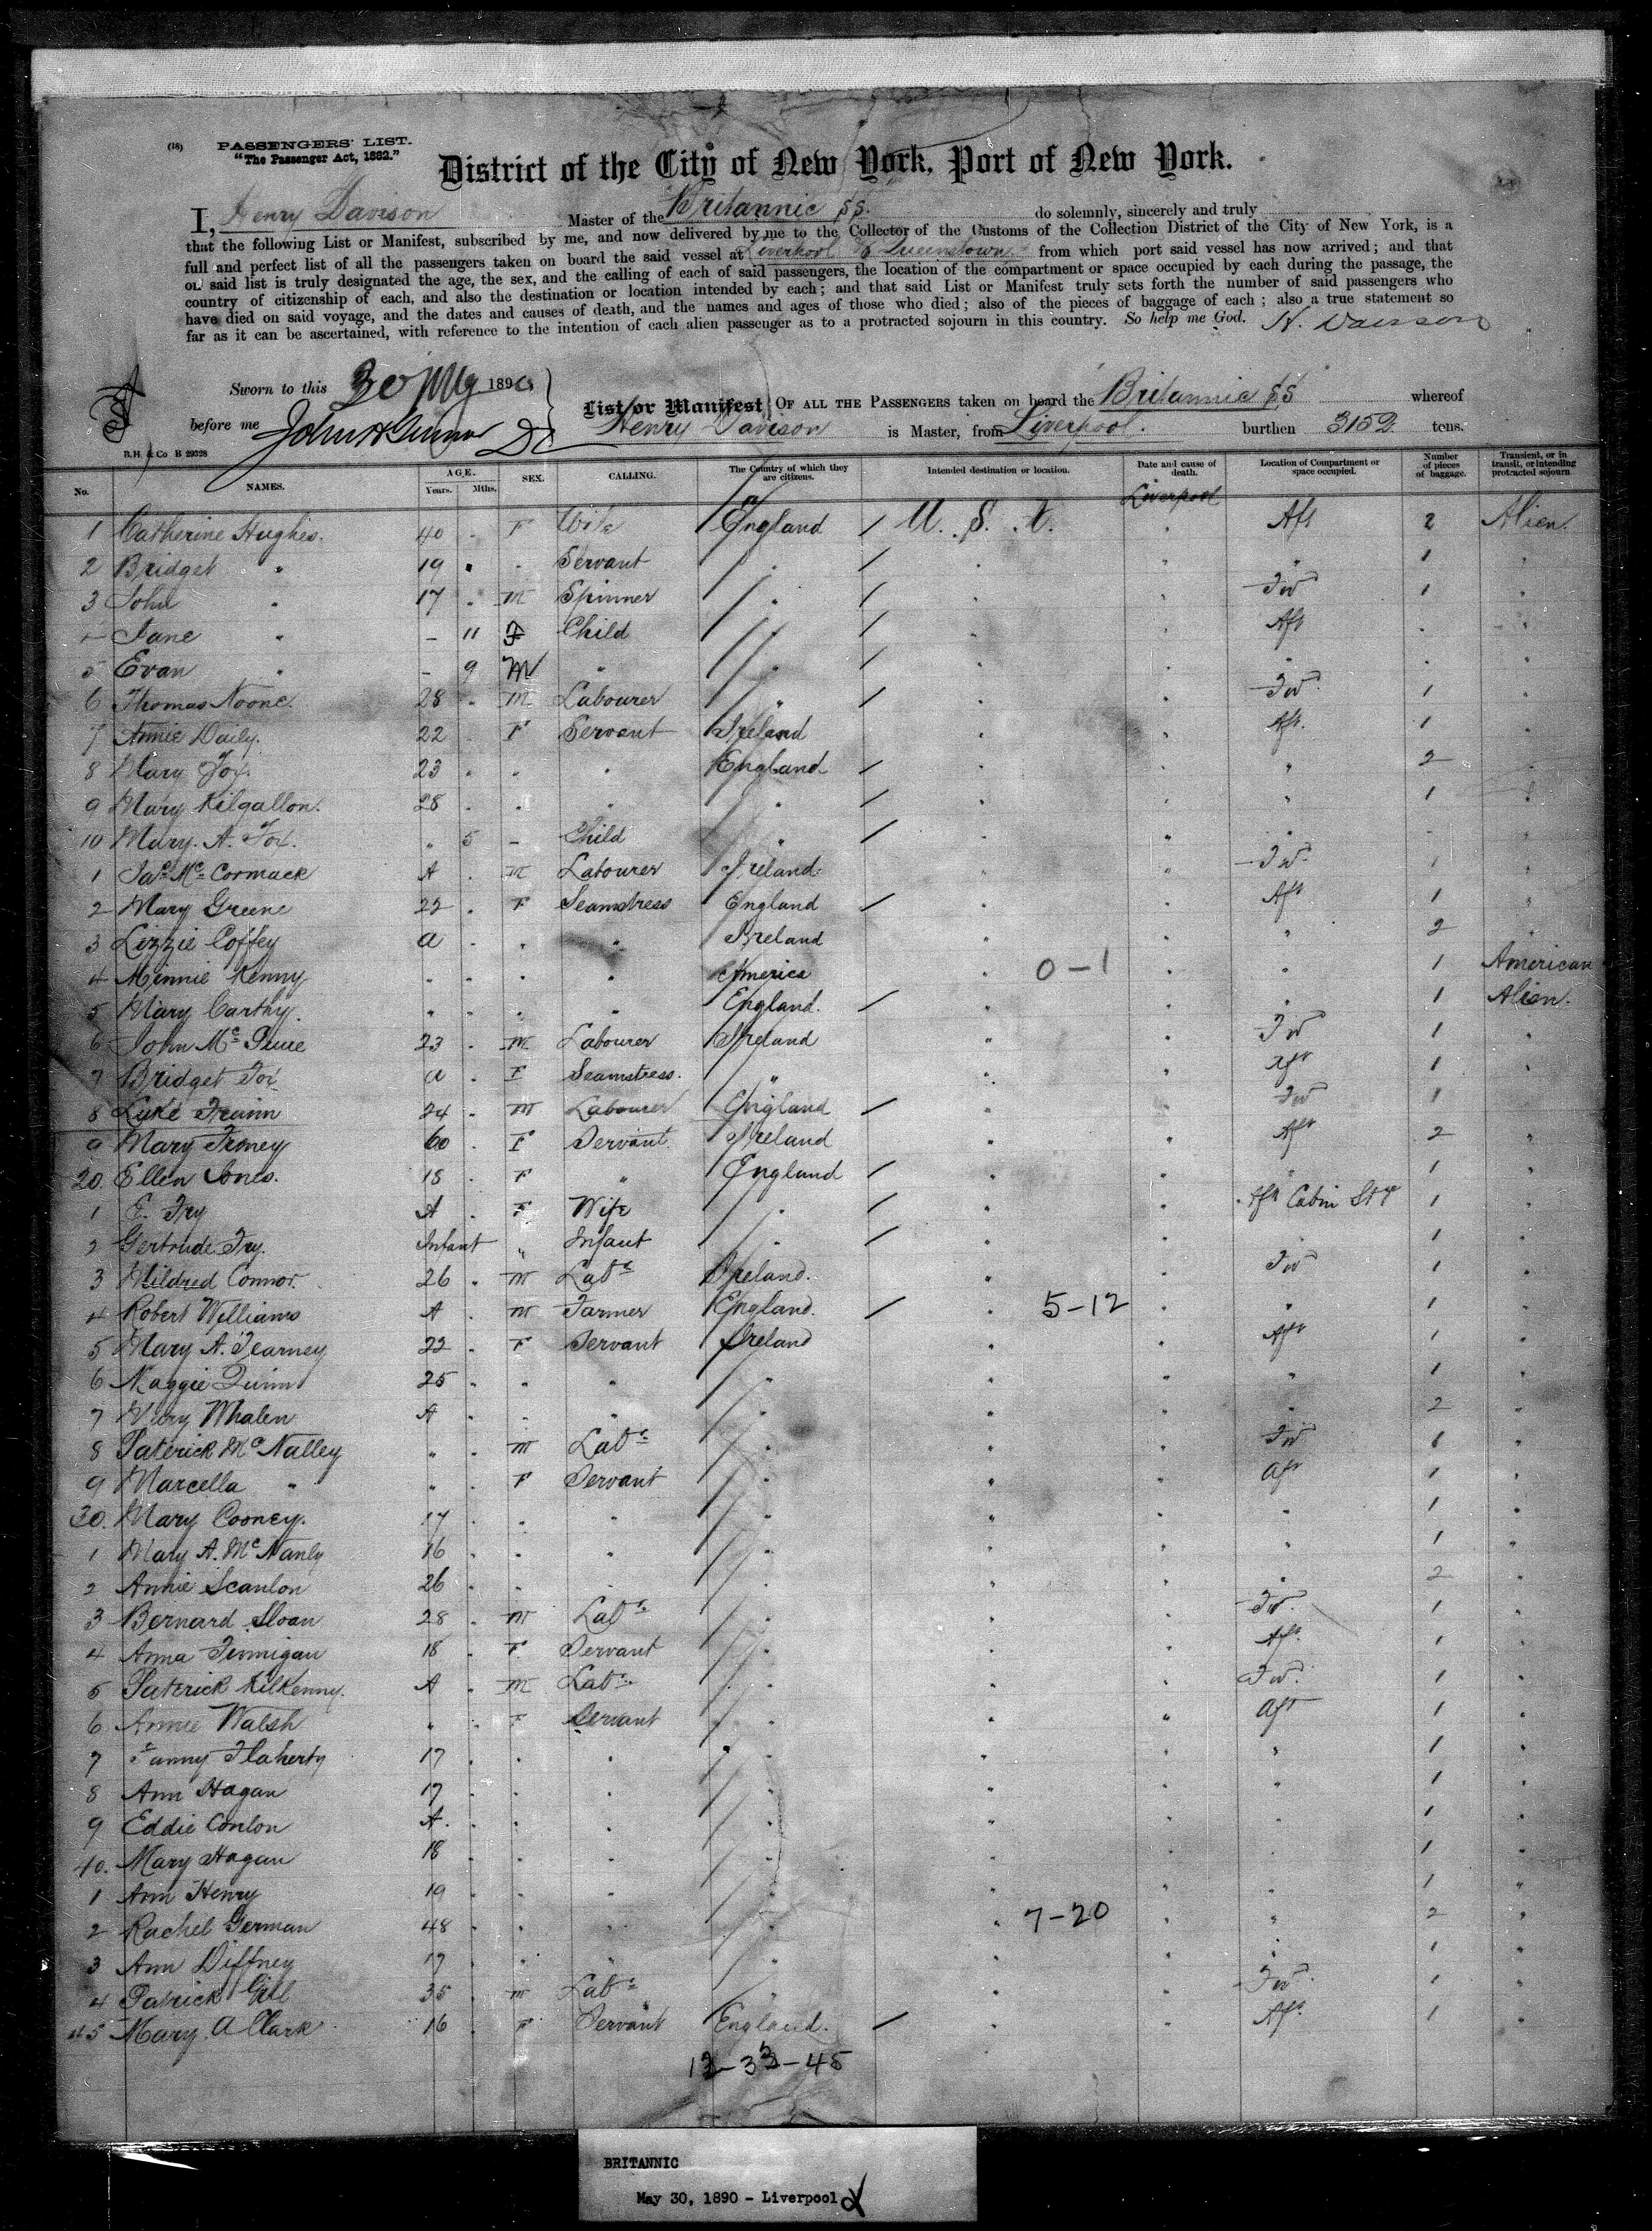 (18) PASSENGERS' LIST.
"The Passenger Act, 1882."
District of the City of New York, Port of New York.
I, Henry Davison Master of the Britannic SS. do solemnly, sincerely and truly
that the following List or Manifest, subscribed by me, and now delivered by me to the Collector of the Customs of the Collection District of the City of New York, is a
full and perfect list of all the passengers taken on board the said vessel at Liverpool & Queenstown from which port said vessel has now arrived; and that
on said list is truly designated the age, the sex, and the calling of each of said passengers, the location of the compartment or space occupied by each during the passage, the
country of citizenship of each, and also the destination or location intended by each; and that said List or Manifest truly sets forth the number of said passengers who
have died on said voyage, and the dates and causes of death, and the names and ages of those who died; also of the pieces of baggage of each; also a true statement so
far as it can be ascertained, with reference to the intention of each alien passenger as to a protracted sojourn in this country. So help me God. H. Davison
Sworn to this 30 May 1890
before me
List or Manifest OF ALL THE PASSENGERS taken on board the Britannic SS whereof
Henry Davison is Master, from Liverpool. burthen 3152 tons.
B.H. & Co B 29328
No. NAMES. AGE. Years. Mths. SEX. CALLING. The Country of which they are citizens. Intended destination or location. Date and cause of death. Location of Compartment or space occupied. Number of pieces of baggage. Transient, or in transit, or intending protracted sojourn
Liverpool
1 Catherine Hughes. 40 F Wife England / U. S. A. Aft 2 Alien.
2 Bridget " 19 " Servant " / " " 1 "
3 John " 17 " M Spinner " / " Fwd 1 "
4 Jane " - 11 F Child " / " Aft "
5 Evan " - 9 M " " / " " "
6 Thomas Noone. 28 " M Labourer " / " Fwd 1 "
7 Annie Daily. 22 F Servant Ireland " Aft. 1 "
8 Mary Fox. 23 " " " England / " " 2
9 Mary Kilgallon. 28 " " " " / " " 1 "
10 Mary. A. Fox. " 5 - Child " / " "
1 Jas. Mc Cormack A M Labourer Ireland. " Fwd. 1
2 Mary Greene 22 F Seamstress England / " Aft 1 "
3 Lizzie Coffey a " " " Ireland " " 2 "
4 Minnie Kenny " " " " America " 0-1 " 1 American
5 Mary Carthy. " " " " England. / " " 1 Alien.
6 John Mc 23 M Labourer Ireland " Fwd 1 "
7 Bridget Fox a F Seamstress. " " Aft 1 "
8 Luke 24 M Labourer England / " Fwd 1
9 Mary 60 F Servant. Ireland " Aft 2 "
20. Ellen Jones. 18 F " England / " " 1 "
1 E. Fry A F Wife " / " Aft Cabin Stge 1 "
2 Gertrude Fry. Infant " Infant " / " 1 "
3 Mildred Connor. 26 M Labr Ireland. " Fwd 1 "
4 Robert Williams A M Farmer England. / " 5-12 " 1 "
5 Mary A. 22 F Servant Ireland " Aft 1 "
6 Maggie Quinn 25 " " " " " " 1 "
7 Mary Whalen A " " " " " " 2 "
8 Paterick McNalley " M Labr " " Fwd 1 "
9 Marcella " " F Servant " " Aft 1 "
30. Mary Cooney. 17 " " " " " " 1 "
1 Mary A. McNanly 16 " " " " " " 1 "
2 Annie Scanlon 26 " " " " " " 2 "
3 Bernard Sloan 28 M Labr " " Fwd. 1 "
4 Anna Finnigan 18 F Servant " " Aft. 1 "
5 Paterick Kilkenny. A M Labr " " Fwd. 1 "
6 Annie Walsh " F Servant " " Aft 1 "
7 Fanny Flaherty 17 " " " " " " 1 "
8 Ann Hagan 17 " " " " " " 1 "
9 Eddie Conlon A. " " " " " " 1 "
40. Mary Hagan 18 " " " " " " 1 "
1 Ann Henry 19 " " " " " " 1 "
2 Rachel German 48 " " " " " 7-20 " 2 "
3 Ann Diffney 17 " " " " " " 1 "
4 Patrick Gill 35 M Labr " " Fwd. 1 "
45 Mary. A Clark 16 F Servant England. / " Aft. 1 "
BRITANNIC
May 30, 1890 - Liverpool